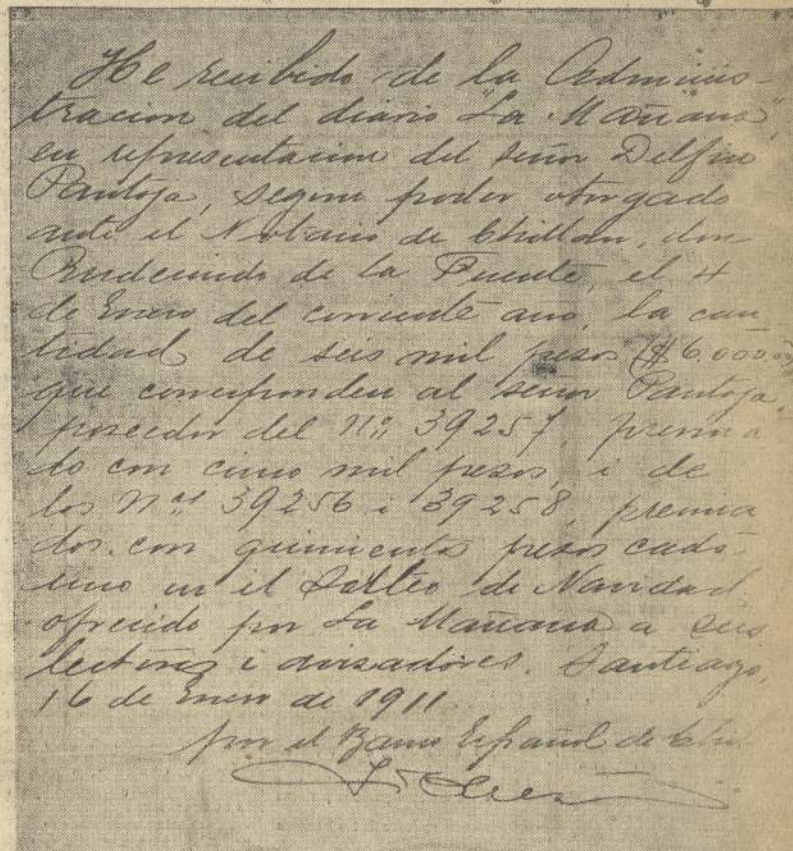 He recibido de la Adminis-
tracion del diario "La Mañana",
en representacion del señor Delfin
Pantoja, segun poder otorgado
ante el Notario de Chillan, don
Rudecindo de la Fuente, el 4
de Enero del corriente año, la can
tidad de seis mil pesos ($6.000.00)
que corresponden al señor Pantoja,
poseedor del N.º 39257, premia
do con cinco mil pesos, i de
los N.os 39256 i 39258, premia
dos con quinientos pesos cada
uno en el Sorteo de Navidad
ofrecido por La Mañana a sus
lectores i avisadores. Santiago,
16 de Enero de 1911.
por el Banco Español de Chile